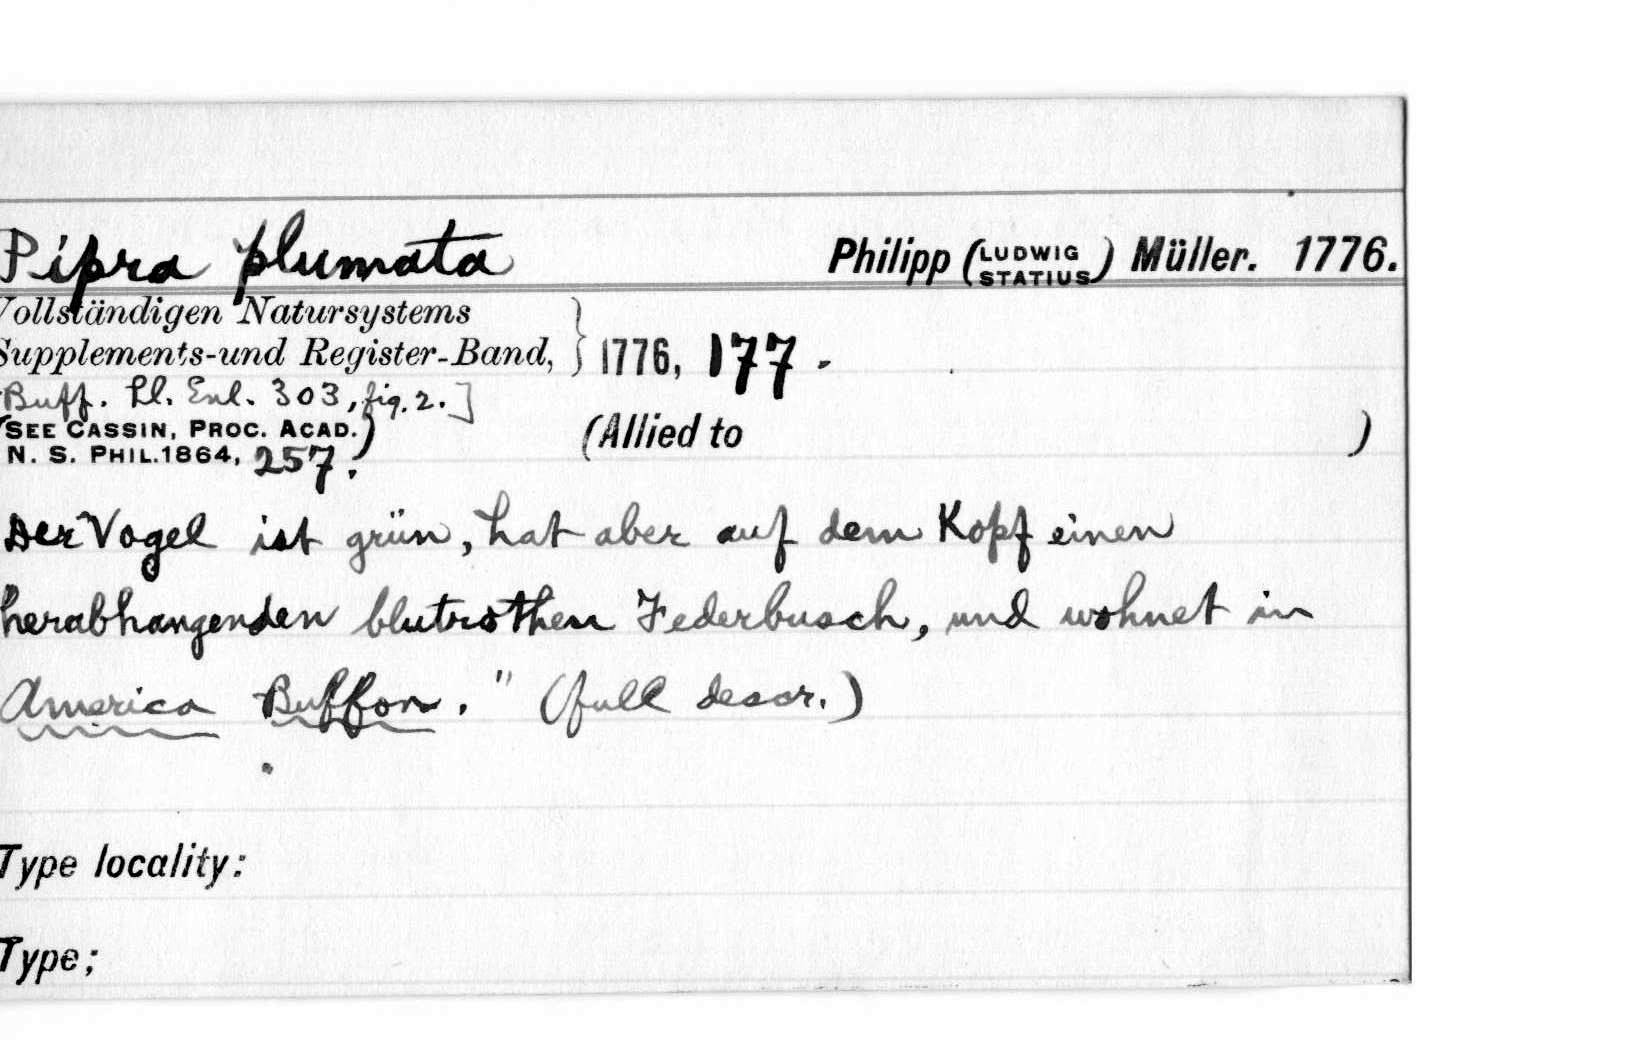 Pipra plumata Philipp (LUDWIG STATIUS) Müller. 1776.
Vollständigen Natursystems
Supplements-und Register-Band, } 1776, 177.
Buff. Pl. Enl. 303, fig. 2.]
(SEE CASSIN, PROC. ACAD. N. S. PHIL. 1864, 257.) (Allied to )
Der Vogel ist grün, hat aber auf dem Kopf einen
herabhangenden blutrothen Federbusch, und wohnet in
America Buffon." (full descr.)
Type locality:
Type;